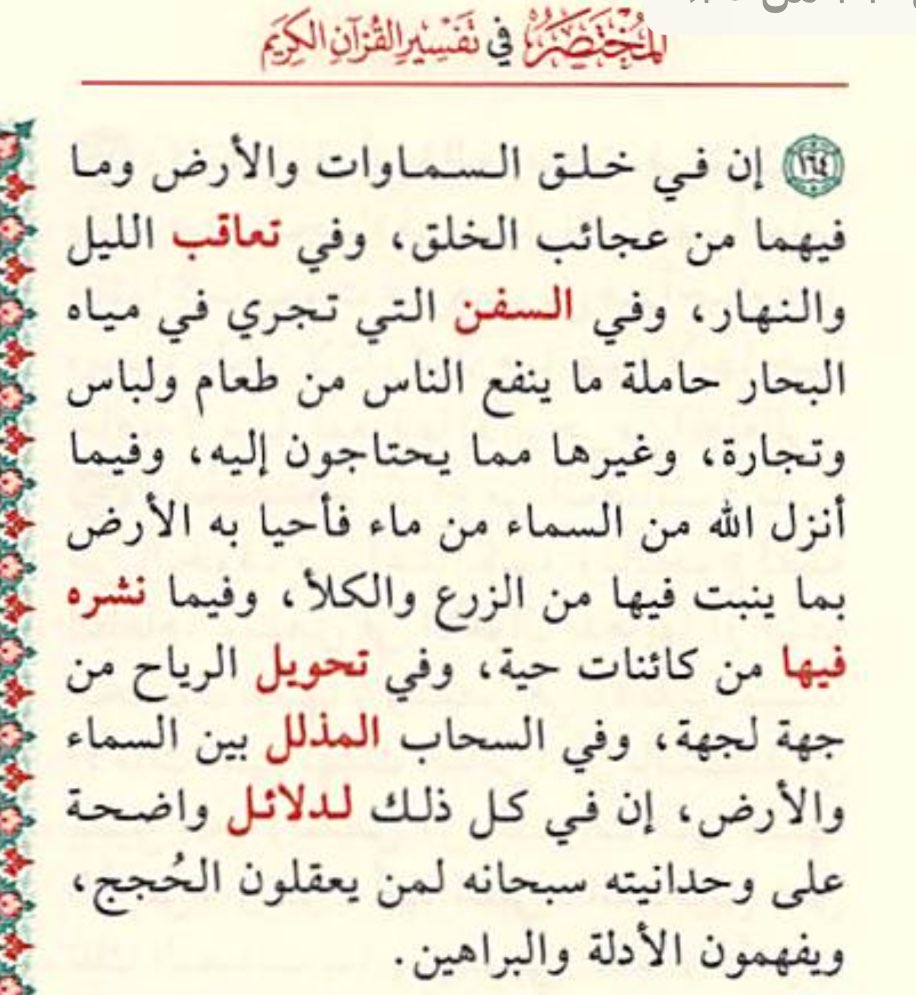 المختصر في تفسير القرآن الكريم
١٦٤ إن في خلق السماوات والأرض وما
فيهما من عجائب الخلق، وفي تعاقب الليل
والنهار، وفي السفن التي تجري في مياه
البحار حاملة ما ينفع الناس من طعام ولباس
وتجارة، وغيرها مما يحتاجون إليه، وفيما
أنزل الله من السماء من ماء فأحيا به الأرض
بما ينبت فيها من الزرع والكلأ، وفيما نشره
فيها من كائنات حية، وفي تحويل الرياح من
جهة لجهة، وفي السحاب المذلل بين السماء
والأرض، إن في كل ذلك لدلائل واضحة
على وحدانيته سبحانه لمن يعقلون الحُجج،
ويفهمون الأدلة والبراهين.